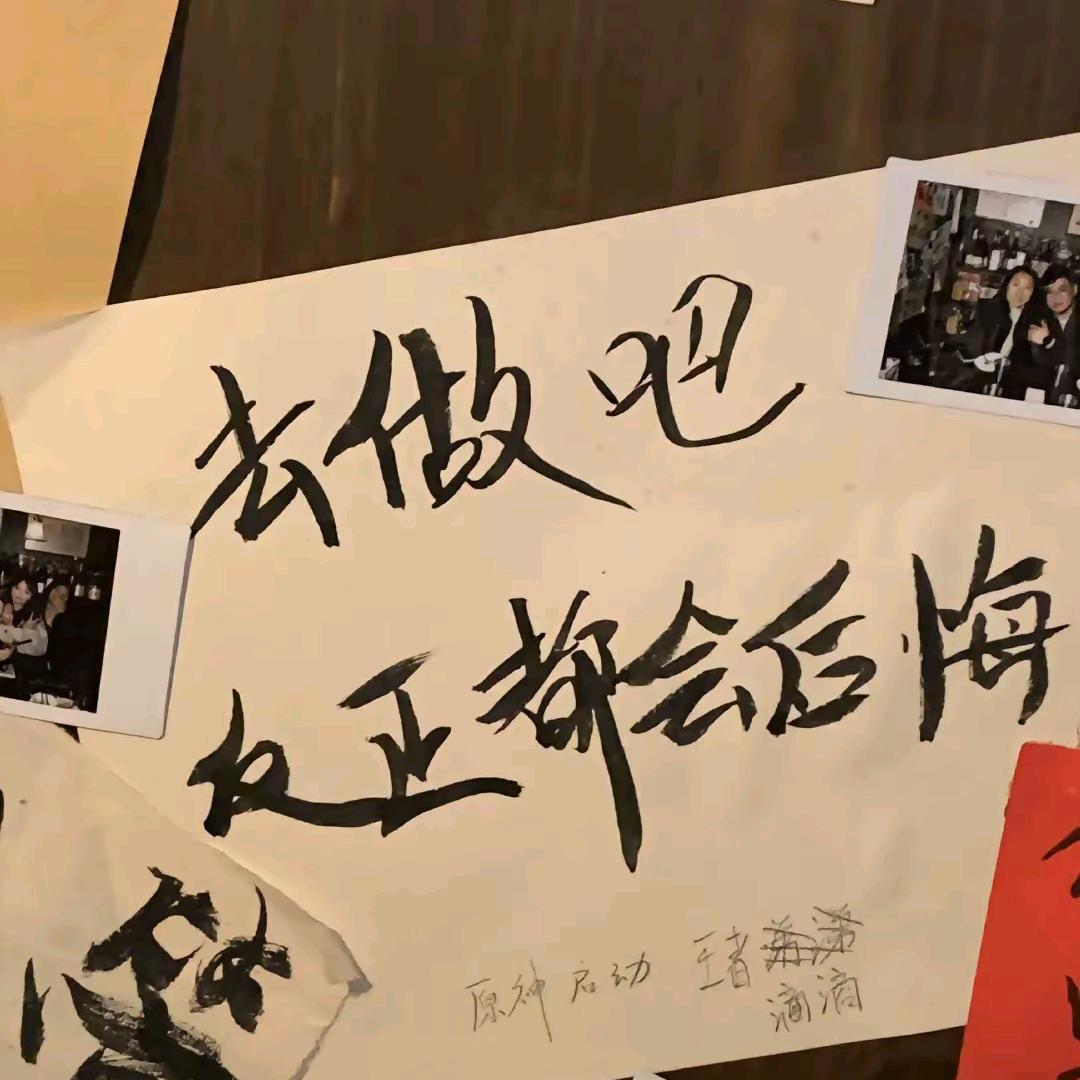 去做吧
反正都会后悔
原神 启动 王者
滴滴